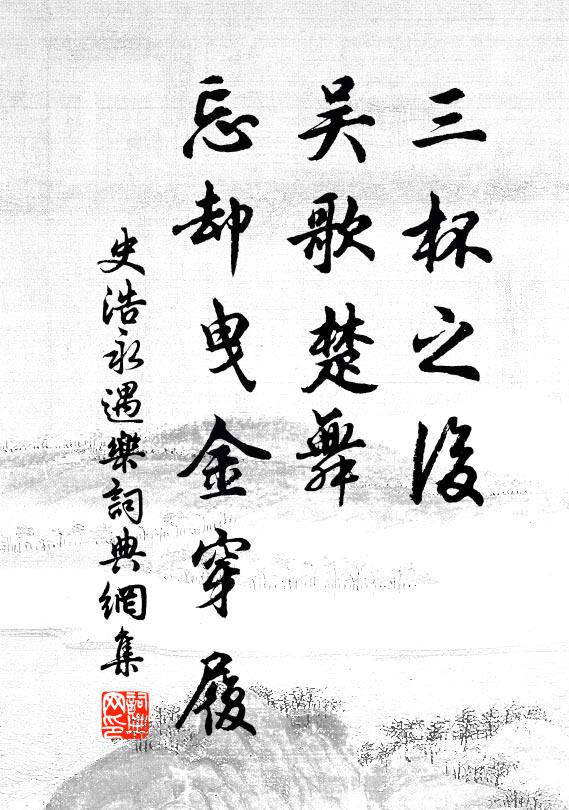 三杯之後
吴歌楚舞
忘却曳金穿履
史浩永遇樂詞典網集